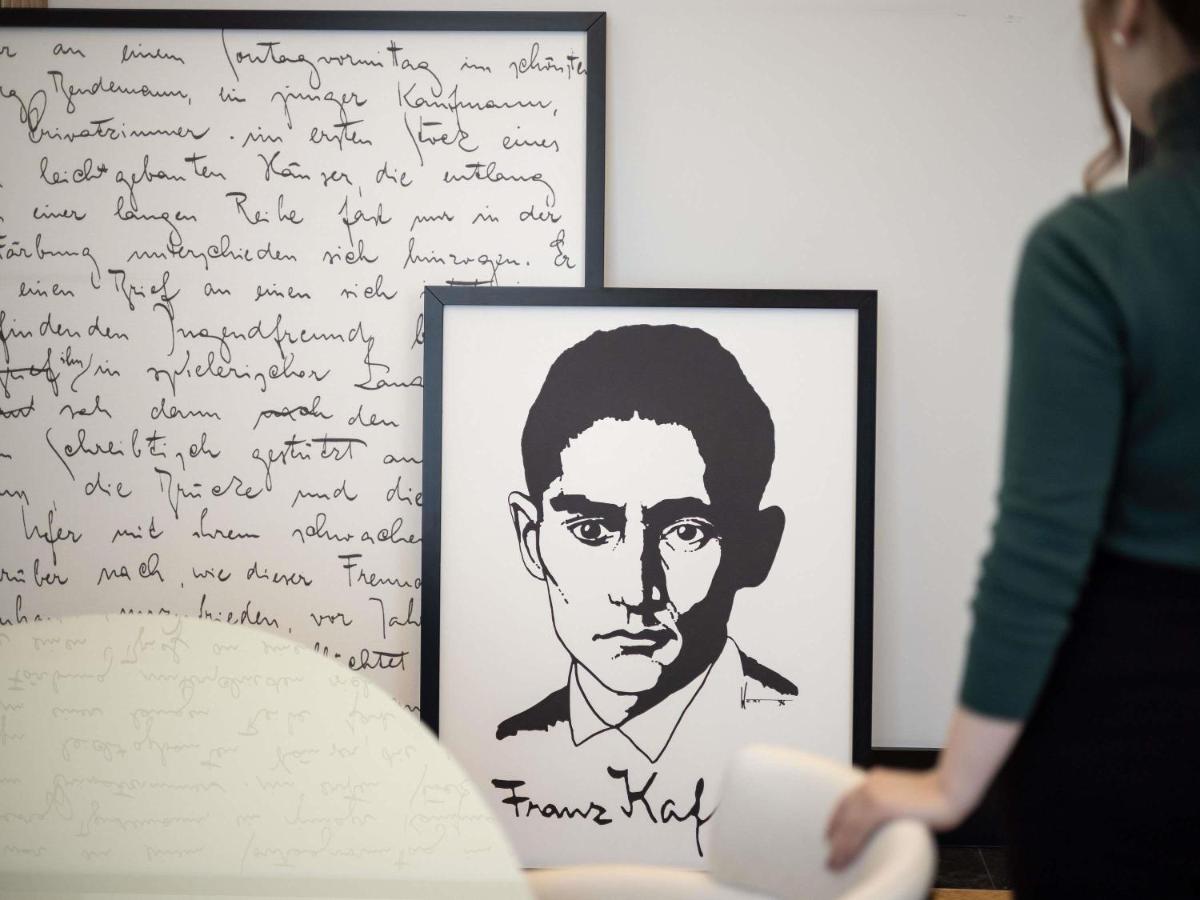 r an einem Sontagvormittag im schönsten
g Bendemann, ein junger Kaufmann,
Privatzimmer im ersten Stock eines
leichtgebauten Häuser, die entlang
einer langen Reihe fast nur in der
Färbung unterschieden sich hinzogen. Er
einen Brief an einen sich
findenden Jugendfreund b
ihn in spielerischer Lang
sah dann noch den
Schreibtisch gestützt au
die Brücke und die
Ufer mit ihrem schwachen
rüber nach, wie dieser Freund
frieden, vor Jah
flüchtet
Franz Kaf